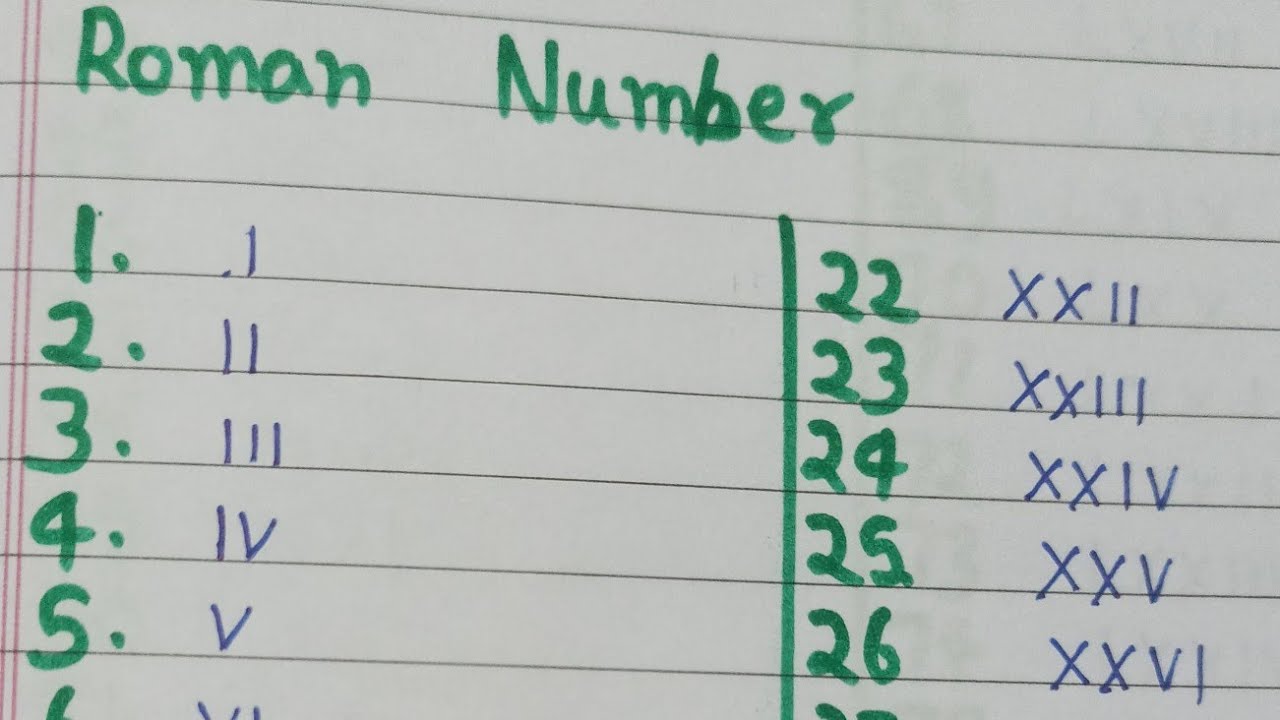 Roman Number
1. I
2. II
3. III
4. IV
5. V
22 XXII
23 XXIII
24 XXIV
25 XXV
26 XXVI